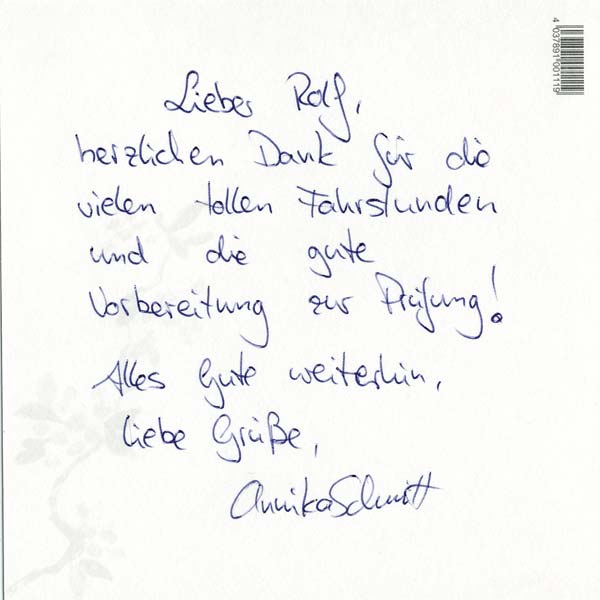 4 037891 001119
Lieber Rolf,
herzlichen Dank für die
vielen tollen Fahrstunden
und die gute
Vorbereitung zur Prüfung!
Alles Gute weiterhin,
liebe Grüße,
Annika Schmitt